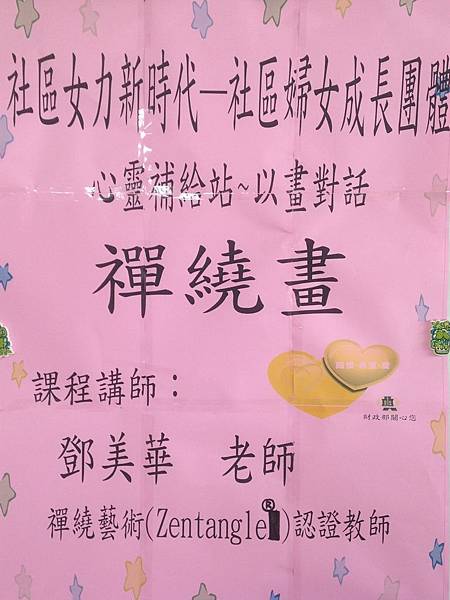 社區女力新時代—社區婦女成長團體
心靈補給站~以畫對話
禪繞畫
課程講師：
財政部關心您
鄧美華 老師
禪繞藝術(Zentangle®)認證教師